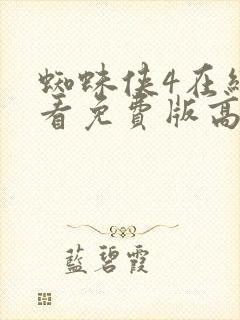 蜘蛛侠4在纟
看免費版高
藍碧霞